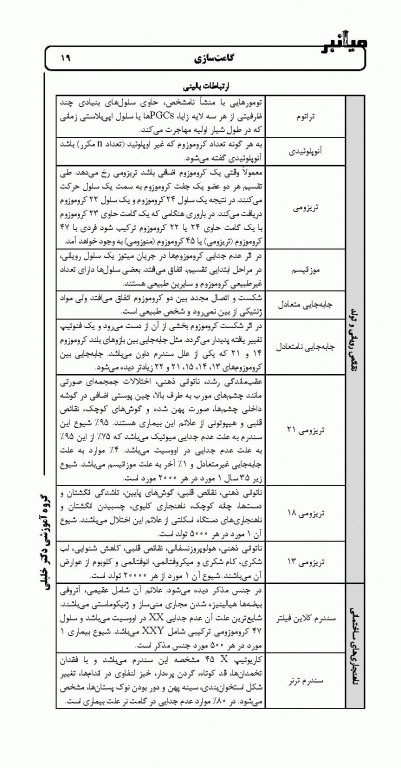 میانبر
گامت‌سازی
۱۹
ارتباطات بالینی
نقائص رویانی و تولد
تراتوم
تومورهایی با منشأ نامشخص، حاوی سلول‌های بنیادی چند
ظرفیتی از هر سه لایه زایا، PGCsها یا سلول اپی‌بلاستی زمانی
که در طول شیار اولیه مهاجرت می‌کند.
آنوپلوئیدی
به هر گونه تعداد کروموزوم که غیر اوپلوئید (تعداد n مکرر) باشد
آنوپلوئیدی گفته می‌شود.
تریزومی
معمولاً وقتی یک کروموزوم اضافی باشد تریزومی رخ می‌دهد. طی
تقسیم هر دو عضو یک جفت کروموزوم به سمت یک سلول حرکت
می‌کنند. در نتیجه یک سلول ۲۴ کروموزوم و یک سلول ۲۲ کروموزوم
دریافت می‌کند. در باروری هنگامی که یک گامت حاوی ۲۳ کروموزوم
با یک گامت حاوی ۲۴ یا ۲۲ کروموزوم ترکیب شود فردی با ۴۷
کروموزوم (تریزومی) یا ۴۵ کروموزوم (منوزومی) به وجود خواهد آمد.
موزائیسم
در اثر عدم جدایی کروموزوم‌ها در جریان میتوز یک سلول رویانی،
در مراحل ابتدایی تقسیم، اتفاق می‌افتد. بعضی سلول‌ها دارای تعداد
غیرطبیعی کروموزوم و سایرین طبیعی هستند.
جابه‌جایی متعادل
شکست و اتصال مجدد بین دو کروموزوم اتفاق می‌افتد ولی مواد
ژنتیکی از بین نمی‌رود و شخص طبیعی است.
جابه‌جایی نامتعادل
در اثر شکست کروموزوم بخشی از آن از دست می‌رود و یک فنوتیپ
تغییر یافته پدیدار می‌گردد. مثل جابه‌جایی بین بازوهای بلند کروموزوم
۱۴ و ۲۱ که یکی از علل سندرم داون می‌باشد. جابه‌جایی بین
کروموزوم‌های ۱۳، ۱۴، ۱۵، ۲۱ و ۲۲ زیادتر دیده می‌شود.
تریزومی ۲۱
عقب‌ماندگی رشد، ناتوانی ذهنی، اختلالات جمجمه‌ای صورتی
مانند چشم‌های مورب به طرف بالا، چین پوستی اضافی در گوشه
داخلی چشم‌ها، صورت پهن شده و گوش‌های کوچک، نقائص
قلبی و هیپوتونی از علائم این بیماری هستند. ۹۵٪ شیوع این
سندرم به علت عدم جدایی میوتیک می‌باشد که ۷۵٪ از این ۹۵٪
به علت عدم جدایی در اووسیت می‌باشد. ۴٪ موارد به علت
جابه‌جایی غیرمتعادل و ۱٪ آخر به علت موزائیسم می‌باشد. شیوع
زیر ۳۵ سال ۱ مورد در هر ۲۰۰۰ مورد است.
تریزومی ۱۸
ناتوانی ذهنی، نقائص قلبی، گوش‌های پایین، تاشدگی انگشتان و
دست‌ها، چانه کوچک، ناهنجاری کلیوی، چسبیدن انگشتان و
ناهنجاری‌های دستگاه اسکلتی از علائم این اختلال می‌باشند. شیوع
آن ۱ مورد در هر ۵۰۰۰ تولد است.
تریزومی ۱۳
ناتوانی ذهنی، هولوپروزنسفالی، نقائص قلبی، کاهش شنوایی، لب
شکری، کام شکری و میکروفتالمی، انوفتالمی و کلوبوم از عوارض
آن می‌باشند. شیوع آن ۱ مورد از هر ۲۰۰۰۰ تولد است.
ناهنجاری‌های ساختمانی
سندرم کلاین فیلتر
در جنس مذکر دیده می‌شود. علائم آن شامل عقیمی، آتروفی
بیضه‌ها هیالینیزه شدن مجاری منی‌ساز و ژنیکوماستی می‌باشند.
شایع‌ترین علت آن عدم جدایی XX در اووسیت می‌باشد و سلول
۴۷ کروموزومی ترکیبی شامل XXY می‌باشد. شیوع بیماری ۱
مورد در هر ۵۰۰ مورد جنس مذکر است.
سندرم ترنر
کاریوتیپ X ۴۵ مشخصه این سندرم می‌باشد و با فقدان
تخمدان‌ها، قد کوتاه، گردن پره‌دار، خیز لنفاوی در اندام‌ها، تغییر
شکل استخوان‌بندی، سینه پهن و دور بودن نوک پستان‌ها، مشخص
می‌شود. در ۸۰٪ موارد عدم جدایی در گامت نر علت بیماری است.
گروه آموزشی دکتر خلیلی